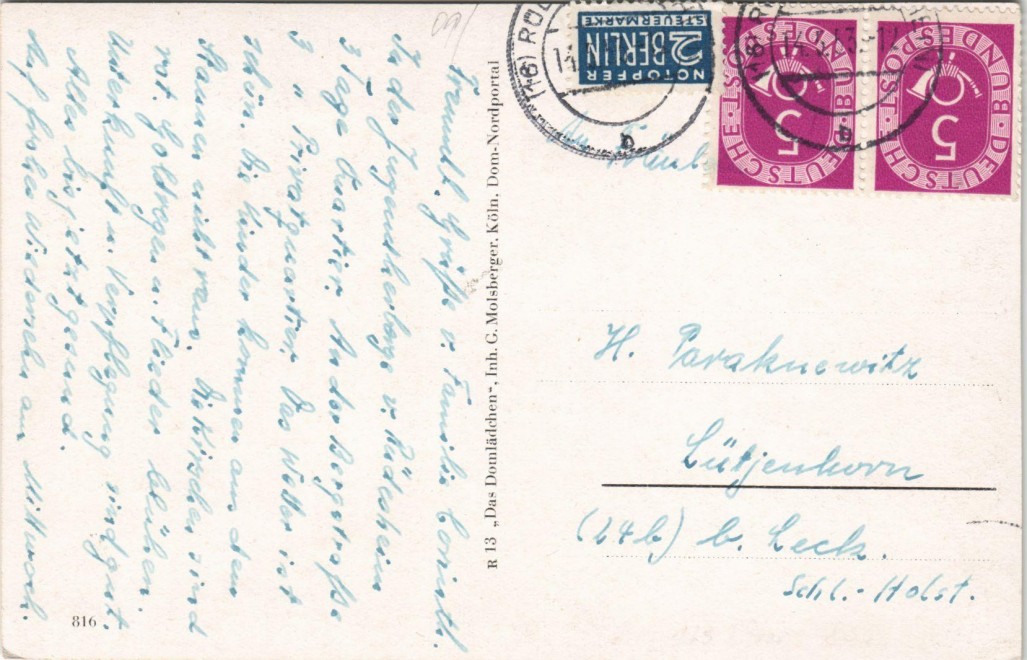 Freundl. Grüße a. Familie Corinth.
In der Jugendherberge v. Rüdesheim
3 Tage Quartier. An der Bergstraße
3 " Privatquartier. Das Wetter ist
schön. Die Kinder kommen aus dem
Staunen nicht raus. Die Kirschen sind
rot. Goldregen u. Flieder blühen.
Unterkunft u. Verpflegung sind gut.
Alles bis jetzt gesund.
Auf frohes Wiedersehn am Mittwoch.
816
R 13 „Das Domlädchen", Inh. C. Molsberger, Köln, Dom-Nordportal
NOTOPFER
2 BERLIN
STEUERMARKE
DEUTSCHE BUNDESPOST
5
DEUTSCHE BUNDESPOST
5
(16)
b
H. Paraknewitz
Lütjenhorn
(24b) b. Leck.
Schl.-Holst.